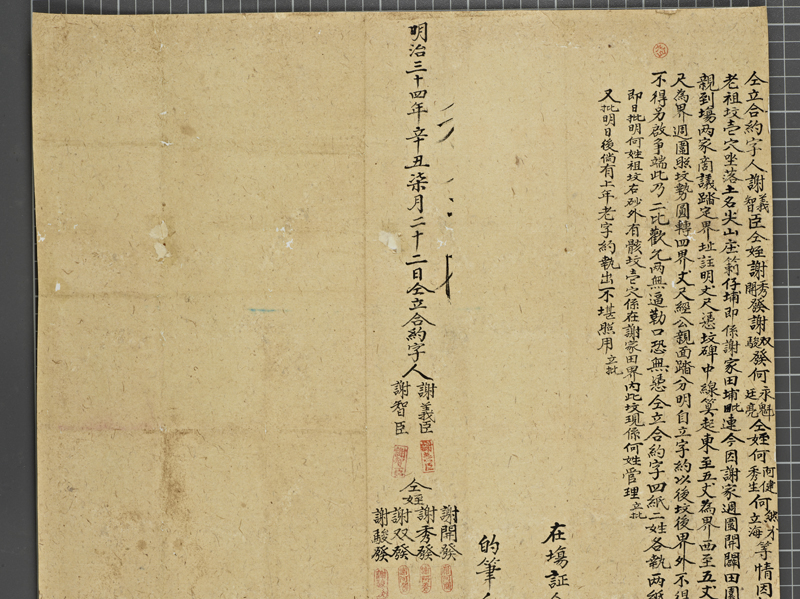 仝立合約字人謝義臣智臣仝姪謝秀發開發謝双發駿發何永魁廷亮仝姪何阿健秀生何立海等情因
老祖坟壱穴坐落土名尖山庄箣仔埔即係謝家田埔毗連今因謝家週圍開闢田園
親到場兩家商議踏定界址註明丈尺憑坟碑中線算起東至五丈為界西至五丈
尺為界週圍照坟勢圓轉四界丈尺經公親面踏分明自立字約以後坟後界外不得
不得另啟爭端此乃二比歡允兩無逼勒口恐無憑仝立合約字四紙二姓各執兩紙
即日批明何姓祖坟右砂外有骸坟壱穴係在謝家田界內此坟現係何姓管理立批
又批明日後倘有上年老字約執出不堪照用立批
在塲証
的筆
明治三十四年辛丑柒月二十二日仝立合約字人
謝義臣
謝智臣
仝姪
謝開發
謝秀發
謝双發
謝駿發